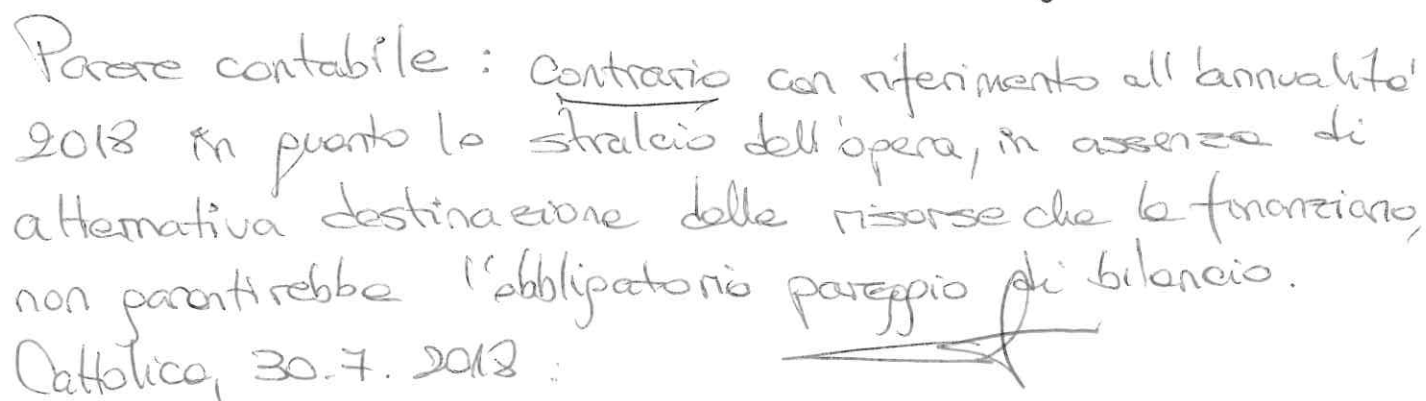 Parere contabile : contrario con riferimento all'annualità
2018 in quanto lo stralcio dell'opera, in assenza di
alternativa destinazione delle risorse che la finanziano,
non garantirebbe l'obbligatorio pareggio di bilancio.
Cattolica, 30.7.2018